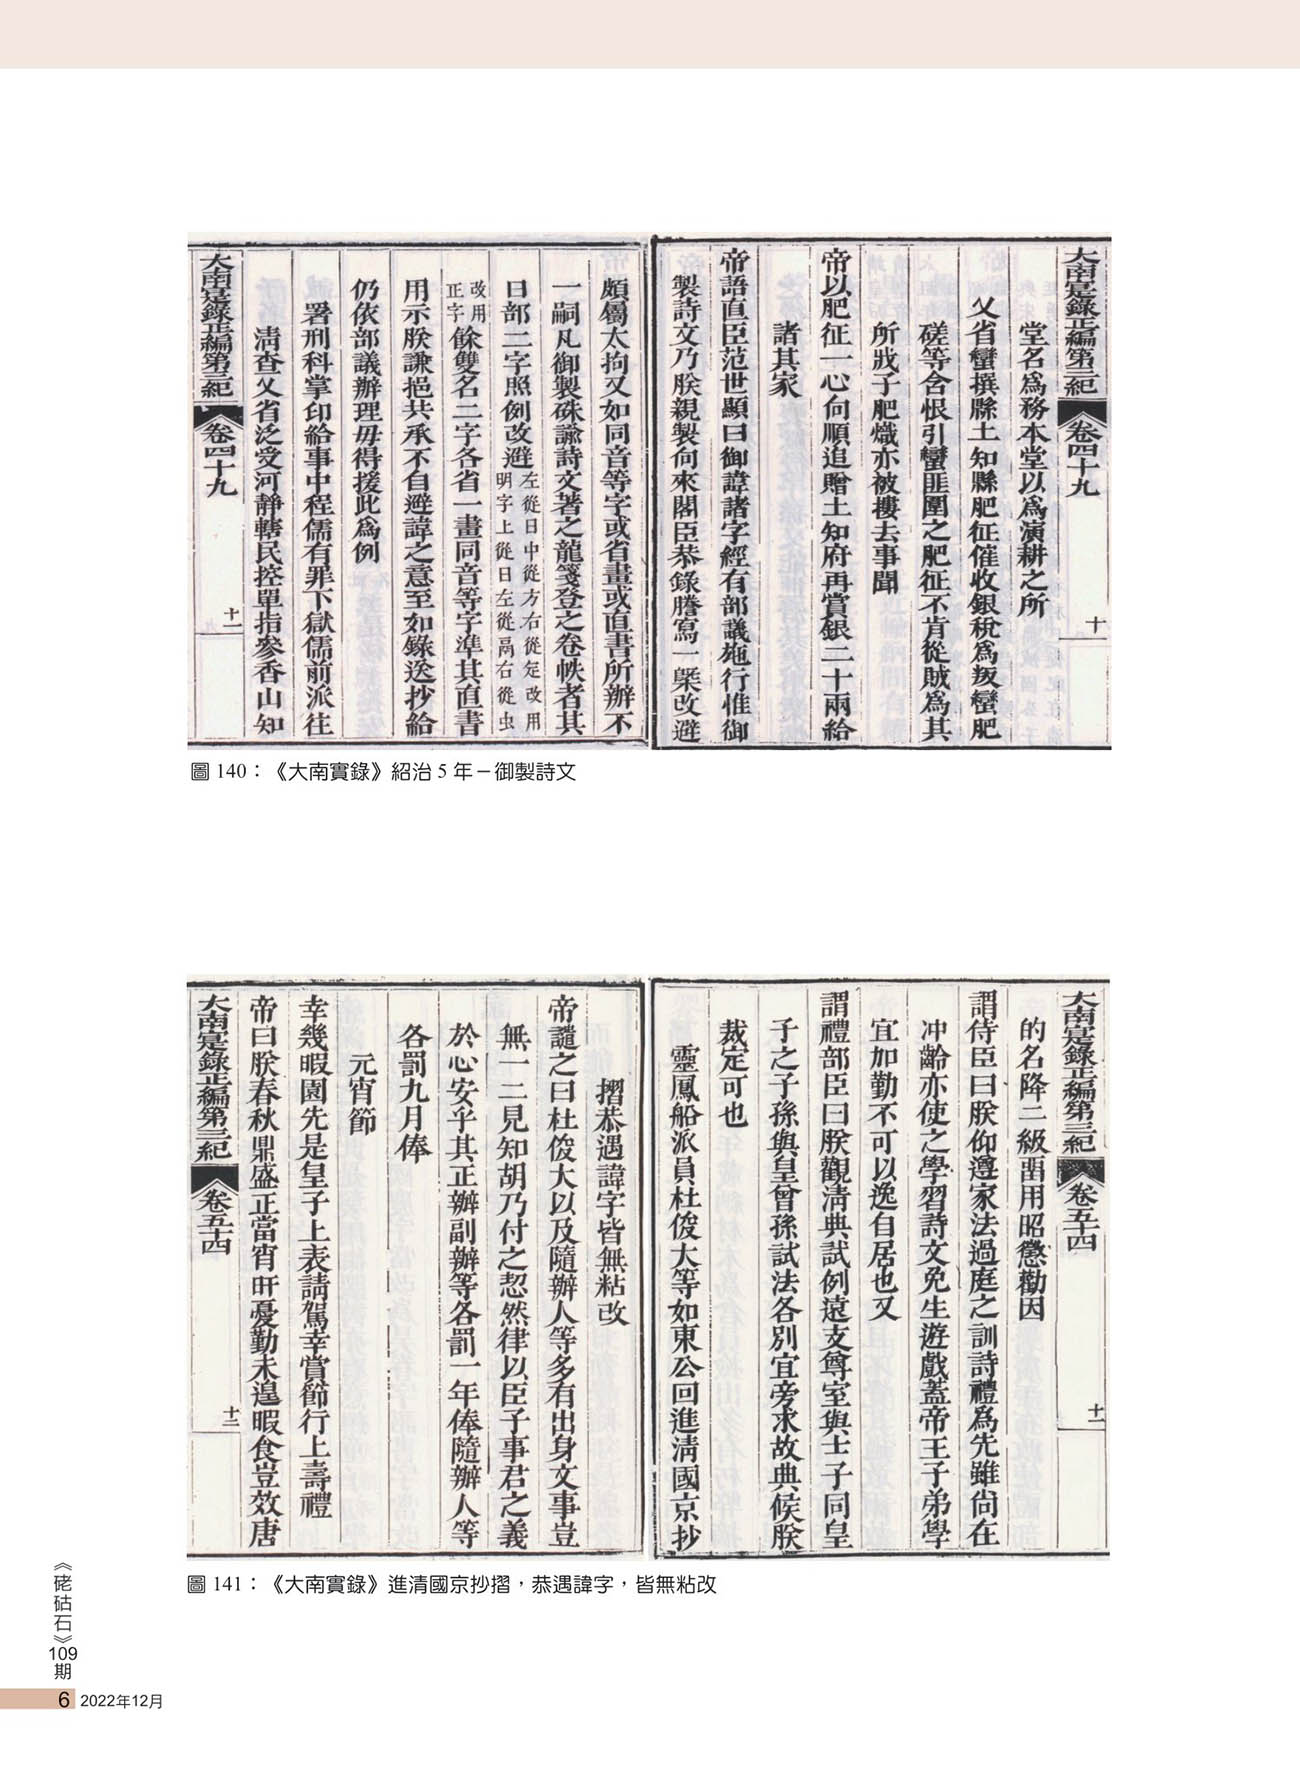 大南寔錄正編第三紀 卷四十九 十
堂名爲務本堂以爲演耕之所
乂省蠻撰縣土知縣肥征催收銀稅爲叛蠻肥
磋等含恨引蠻匪圍之肥征不肯從賊爲其
所戕子肥熾亦被擄去事聞
帝以肥征一心向順追贈土知府再賞銀二十兩給
諸其家
帝語直臣范世顯曰御諱諸字經有部議施行惟御
製詩文乃朕親製向來閣臣恭錄謄寫一槩改避
頗屬太拘又如同音等字或省畫或直書所辦不
一嗣凡御製硃諭詩文著之龍箋登之卷帙者其
日部二字照例改避左從日中從方右從定改用
明字上從日左從鬲右從虫
改用
正字餘雙名二字各省一畫同音等字準其直書
用示朕謙挹共承不自避諱之意至如錄送抄給
仍依部議辦理毋得援此爲例
署刑科掌印給事中程儒有罪下獄儒前派往
清查乂省泛受河靜轄民控單指參香山知
大南寔錄正編第三紀 卷四十九 十一
圖 140：《大南實錄》紹治 5 年－御製詩文
大南寔錄正編第三紀 卷五十四 十一
的名降二級畱用昭懲勸因
謂侍臣曰朕仰遵家法過庭之訓詩禮爲先雖尙在
冲齡亦使之學習詩文免生遊戲蓋帝王子弟學
宜加勤不可以逸自居也又
謂禮部臣曰朕觀淸典試例遠支尊室與士子同皇
子之子孫與皇曾孫試法各別宜旁求故典候朕
裁定可也
靈鳳船派員杜俊大等如東公回進淸國京抄
摺恭遇諱字皆無粘改
帝譴之曰杜俊大以及隨辦人等多有出身文事豈
無一二見知胡乃付之恝然律以臣子事君之義
於心安乎其正辦副辦等各罰一年俸隨辦人等
各罰九月俸
元宵節
幸幾暇園先是皇子上表請駕幸賞節行上壽禮
帝曰朕春秋鼎盛正當宵旰憂勤未遑暇食豈效唐
大南寔錄正編第三紀 卷五十四 十二
圖 141：《大南實錄》進清國京抄摺，恭遇諱字，皆無粘改
《硓𥑮石》109期
6 2022年12月